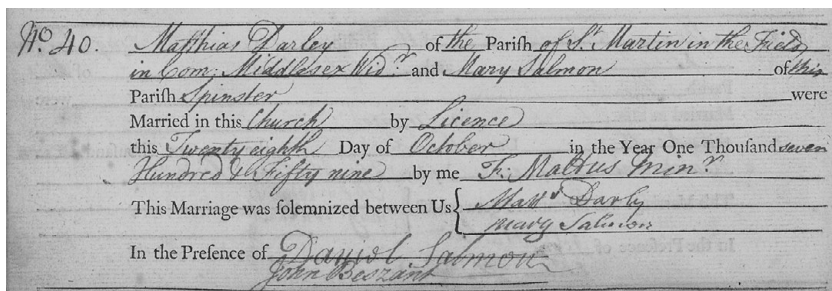 No. 40. Matthias Darley of the Parish of St Martin in the Fields
in Com; Middlesex Widr and Mary Salmon of this
Parish Spinster were
Married in this Church by Licence
this Twenty eighth Day of October in the Year One Thousand seven
Hundred & Fifty nine by me Fr: Maltus Minr
This Marriage was solemnized between Us Mattw Darly
mary Salmon
In the Presence of Daniel Salmon
John Beszant